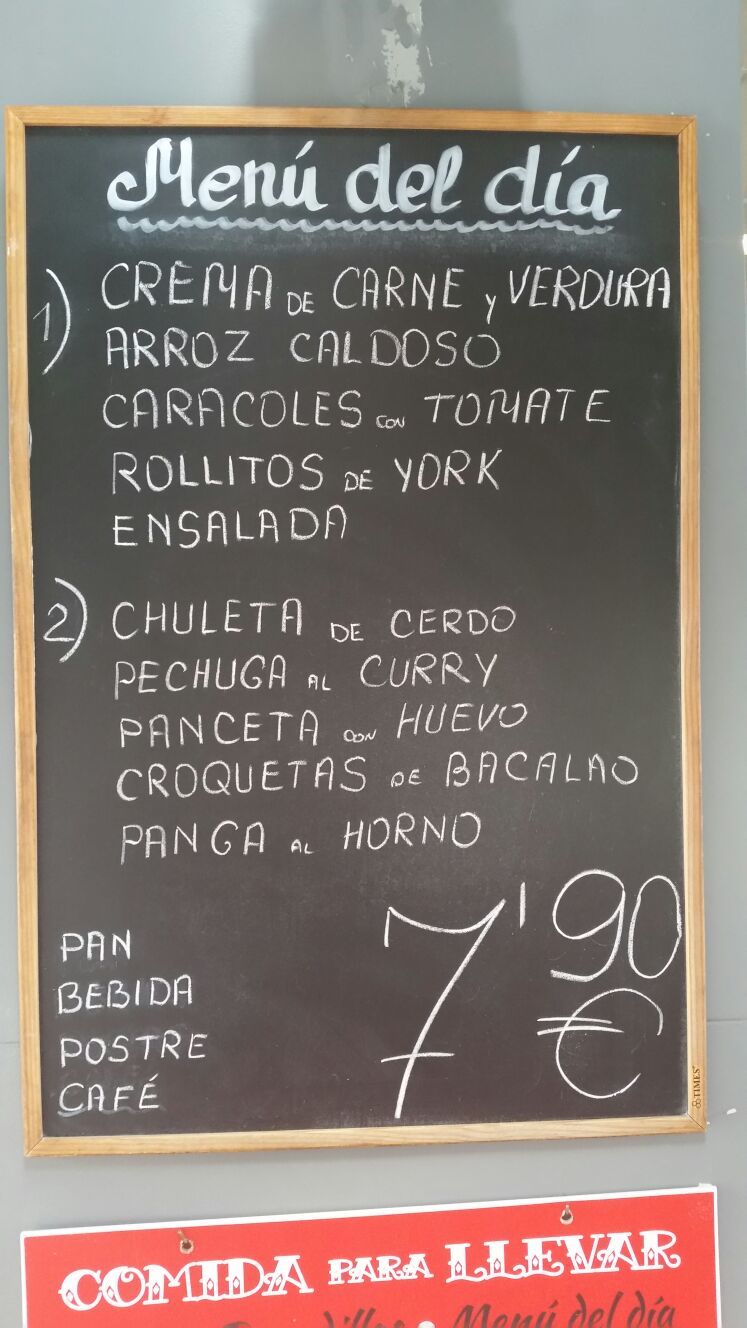 Menú del día
1) CREMA DE CARNE y VERDURA
ARROZ CALDOSO
CARACOLES con TOMATE
ROLLITOS DE YORK
ENSALADA
2) CHULETA DE CERDO
PECHUGA AL CURRY
PANCETA CON HUEVO
CROQUETAS DE BACALAO
PANGA AL HORNO
PAN
BEBIDA
POSTRE
CAFÉ
7'90
€
TIMES
COMIDA PARA LLEVAR
Menú del día